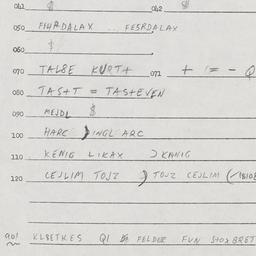 041 $ 042 $
050 FEHRDALAX ... FESRDALAX
060 $
070 TALBE KURT+ 071 + != - Q
080 TAS+T = TAS+EVEN
090 MEJDL $
100 HARC INGL ARC
110 KENIG LIKAX KANIG
120 CEJLIM TOJZ TOJZ CEJLIM
901 KLBETKES QI FELDER FUN